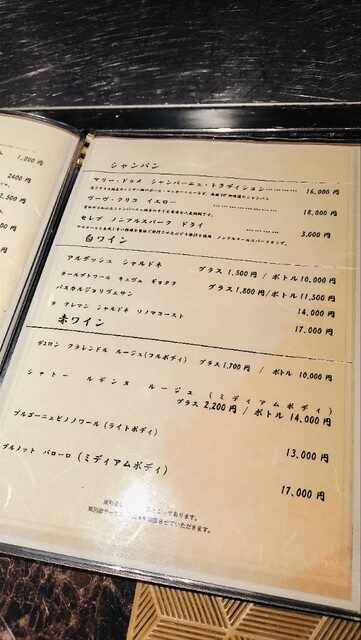 1,800 円
2400 円
2,500 円
シャンパン
マリー・ドゥメ シャンパーニュ・トラディション………… 16,000 円
ヴーヴ・クリコ イエロー ……………… 18,000 円
セレブ ノンアルスパーク ドライ ………… 3,000 円
白ワイン
アルデッシュ シャルドネ グラス 1,500 円 / ボトル 10,000 円
テールデトワール キュヴェ ギョタク グラス 1,800 円/ボトル 11,500 円
パスカルジョリヴェサン 14,000 円
フレマン シャルドネ ソノマコースト 17,000 円
赤ワイン
デュロン フラレンドル ルージュ(フルボディ) グラス 1,700 円 / ボトル 10,000 円
シャトー ルデンヌ ルージュ (ミディアムボディ)
グラス 2,200 円 / ボトル 14,000 円
ブルゴーニュピノノワール(ライトボディ) 13,000 円
プルノット バローロ (ミディアムボディ) 17,000 円
となっております。
させていただきます。